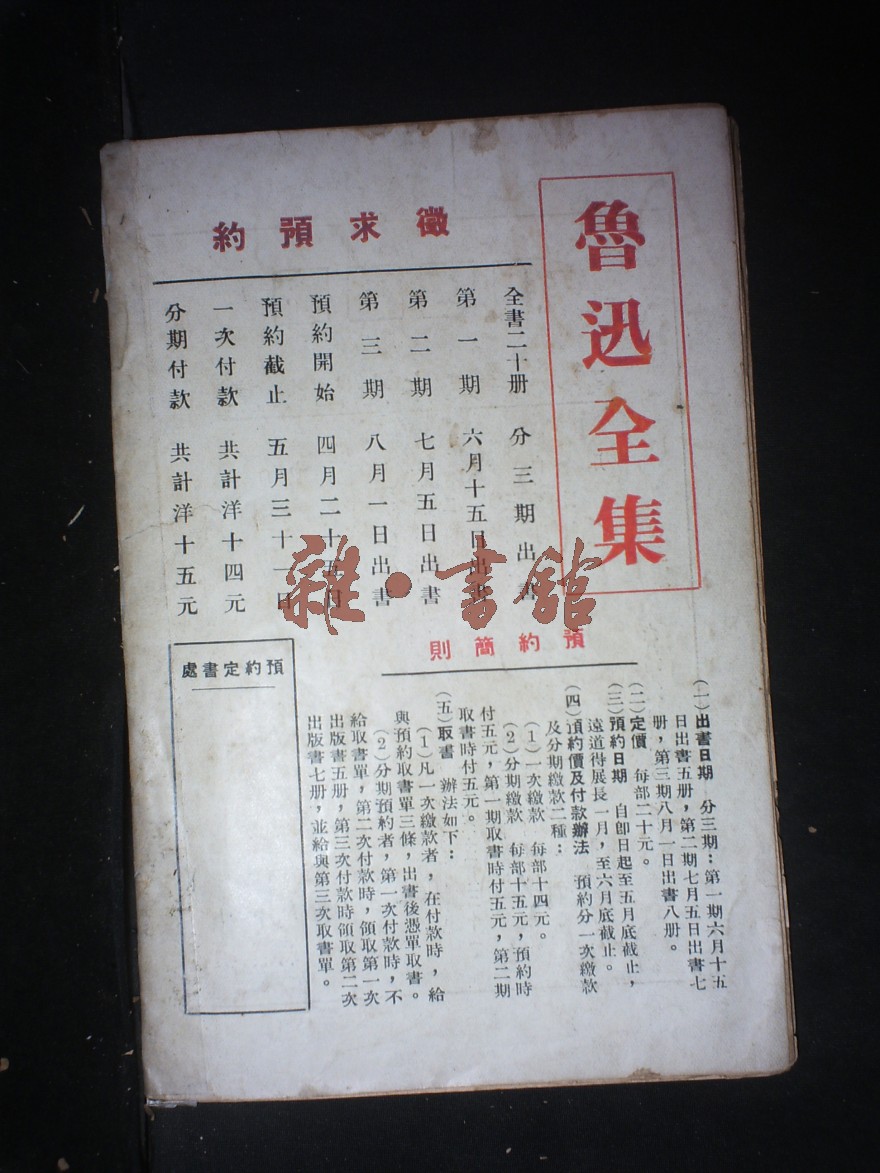 魯迅全集
徵求預約
全書二十册 分三期出書
第一期 六月十五日出書
第二期 七月五日出書
第三期 八月一日出書
預約開始 四月二十五日
預約截止 五月三十一日
一次付款 共計洋十四元
分期付款 共計洋十五元
雜·書館
預約簡則
(一)出書日期 分三期:第一期六月十五
日出書五册,第二期七月五日出書七
册,第三期八月一日出書八册。
(二)定價 每部二十元。
(三)預約日期 自卽日起至五月底截止,
遠道得展長一月,至六月底截止。
(四)預約價及付款辦法 預約分一次繳款
及分期繳款二種:
(1)一次繳款 每部十四元。
(2)分期繳款 每部十五元,預約時
付五元,第一期取書時付五元,第二期
取書時付五元。
(五)取書 辦法如下:
(1)凡一次繳款者,在付款時,給
與預約取書單三條,出書後憑單取書。
(2)分期預約者,第一次付款時,不
給取書單,第二次付款時,領取第一次
出版書五册,第三次付款時領取第二次
出版書七册,並給與第三次取書單。
預約定書處